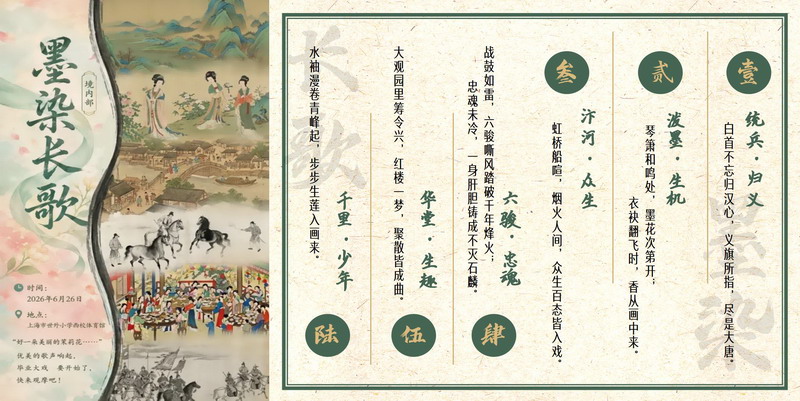 墨染长歌
境内部
时间：
2026年6月26日
地点：
上海市世外小学西校体育馆
“好一朵美丽的茉莉花……”
优美的歌声响起，
毕业大戏 要开始了，
快来观摩吧！
壹
统兵·归义
白首不忘归汉心，义旗所指，尽是大唐。
贰
泼墨·生机
琴箫和鸣处，墨花次第开；
衣袂翻飞时，香从画中来。
叁
汴河·众生
虹桥船喧，烟火人间，众生百态皆入戏。
六骏·忠魂
战鼓如雷，六骏嘶风踏破千年烽火；
忠魂未冷，一身肝胆铸成不灭石麟。
肆
华堂·生趣
大观园里筹令兴，红楼一梦，聚散皆成曲。
伍
千里·少年
水袖漫卷青峰起，步步生莲入画来。
陆
长歌
墨染